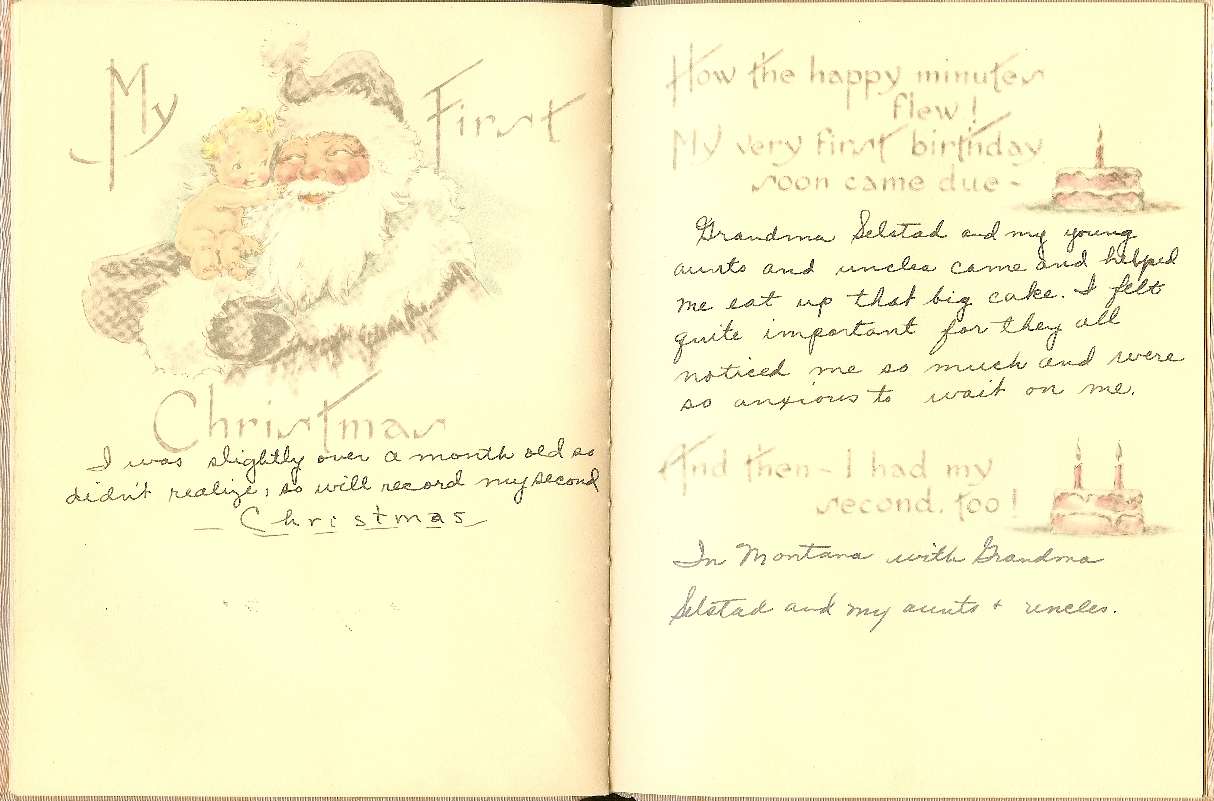 My First
Christmas
I was slightly over a month old so
didn't realize, so will record my second
- Christmas
How the happy minutes
flew!
My very first birthday
soon came due-
Grandma Selstad and my young
aunts and uncles came and helped
me eat up that big cake. I felt
quite important for they all
noticed me so much and were
so anxious to wait on me.
And then- I had my
second, too!
In Montana with Grandma
Selstad and my aunts + uncles.